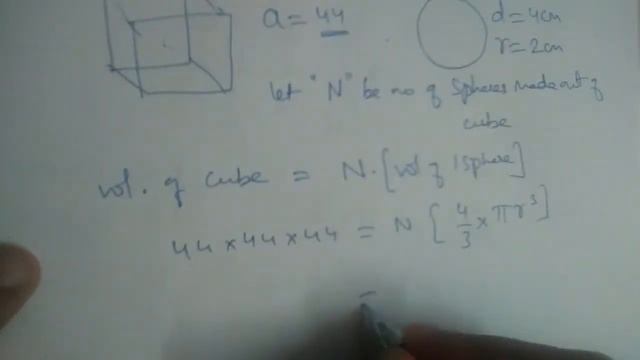 a = 44
d = 4cm
r = 2cm
let "N" be no of Spheres made out of
cube
vol. of cube = N.[vol of 1 sphere]
44 x 44 x 44 = N [4/3 x πr³]
=